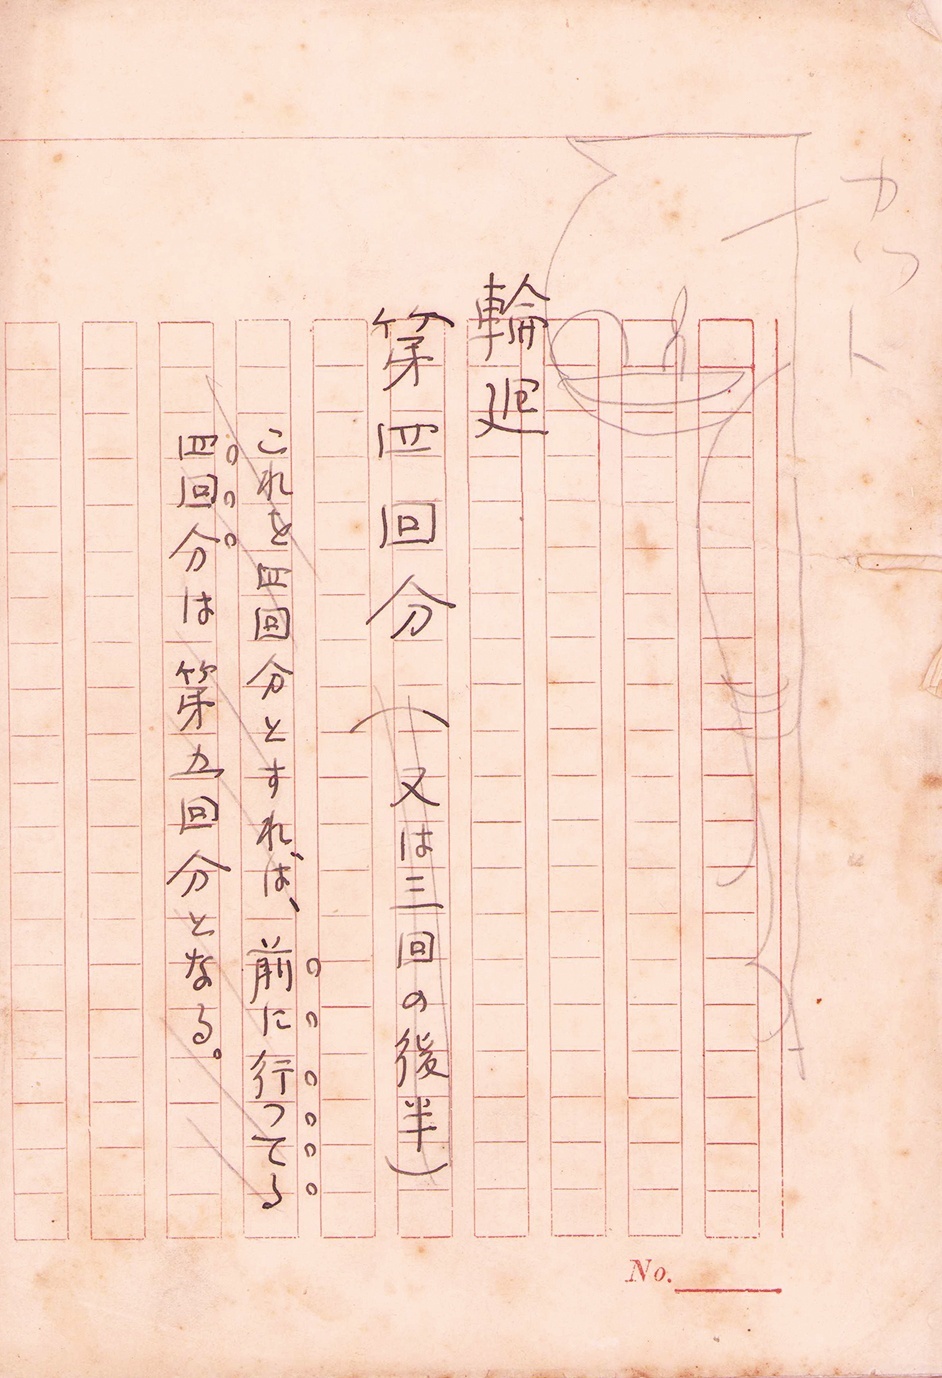 カット
輪廻
第四回分(又は三回の後半)
これを四回分とすれば、前に行つてる
四回分は第五回分となる。
No.